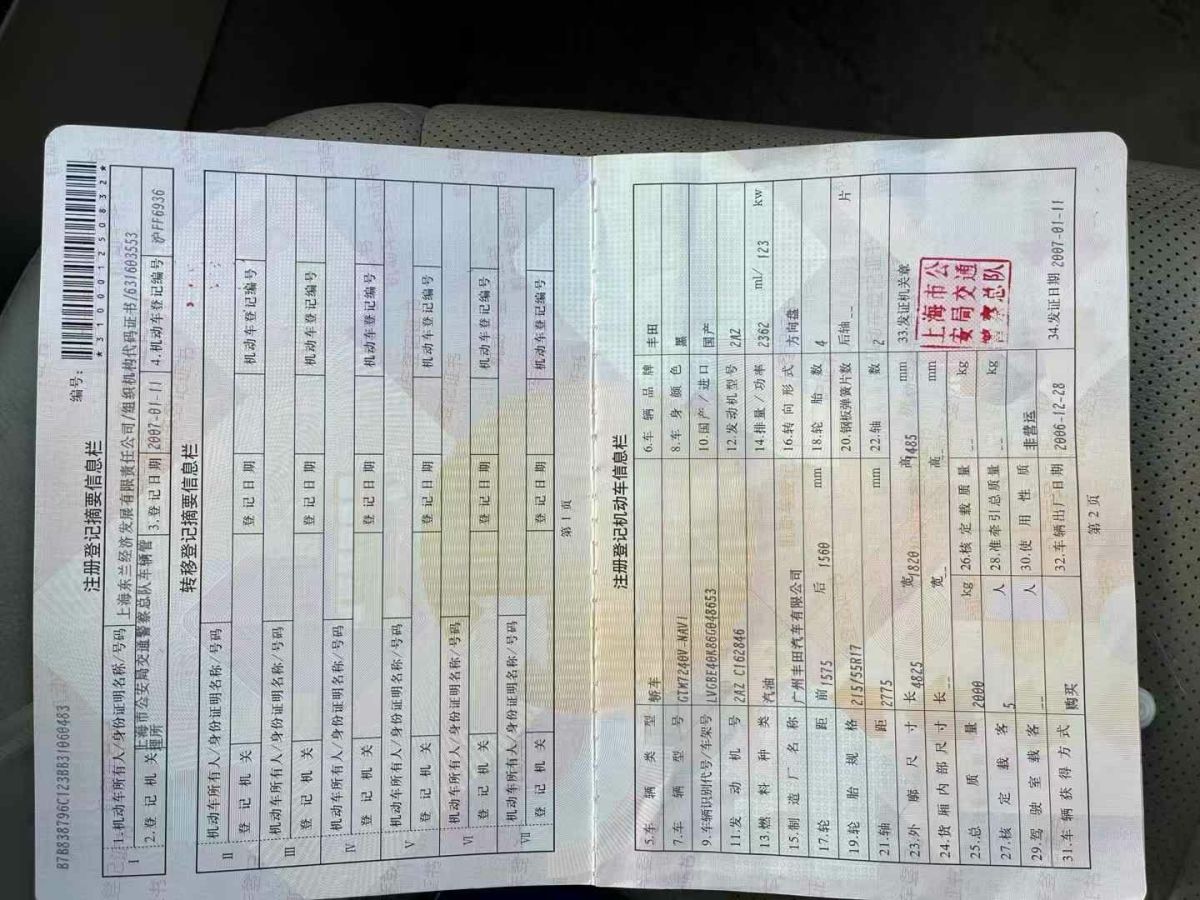 B7B838796C123BB31060483
编号：
*310012508​32*
注册登记摘要信息栏
Ⅰ 1.机动车所有人/身份证明名称/号码 上海东兰经济发展有限责任公司/组织机构代码证书/631603553
2.登记机关 上海市公安局交通警察总队车辆管理所 3.登记日期 2007-01-11 4.机动车登记编号 沪FF6936
转移登记摘要信息栏
Ⅱ 机动车所有人/身份证明名称/号码
登记机关 登记日期 机动车登记编号
Ⅲ 机动车所有人/身份证明名称/号码
登记机关 登记日期 机动车登记编号
Ⅳ 机动车所有人/身份证明名称/号码
登记机关 登记日期 机动车登记编号
Ⅴ 机动车所有人/身份证明名称/号码
登记机关 登记日期 机动车登记编号
Ⅵ 机动车所有人/身份证明名称/号码
登记机关 登记日期 机动车登记编号
Ⅶ 机动车所有人/身份证明名称/号码
登记机关 登记日期 机动车登记编号
第1页
注册登记机动车信息栏
5.车辆类型 轿车 6.车辆品牌 丰田
7.车辆型号 GTM7240V-NAVI 8.车身颜色 黑
9.车辆识别代号/车架号 LVGBE40K86G048653 10.国产/进口 国产
11.发动机号 2AZ C162846 12.发动机型号 2AZ
13.燃料种类 汽油 14.排量/功率 2362 ml/ 123 kw
15.制造厂名称 广州丰田汽车有限公司 16.转向形式 方向盘
17.轮距 前 1575 后 1560 mm 18.轮胎数 4
19.轮胎规格 215/55R17 20.钢板弹簧片数 后轴 -- 片
21.轴距 2775 mm 22.轴数 2
23.外廓尺寸 长 4825 宽 1820 高 1485 mm 33.发证机关章
24.货厢内部尺寸 长 -- 宽 -- 高 -- mm
上海市公安局交通警察总队
25.总质量 2000 kg 26.核定载质量 -- kg
27.核定载客 5 人 28.准牵引总质量 -- kg
29.驾驶室载客 -- 人 30.使用性质 非营运
31.车辆获得方式 购买 32.车辆出厂日期 2006-12-28 34.发证日期 2007-01-11
第2页